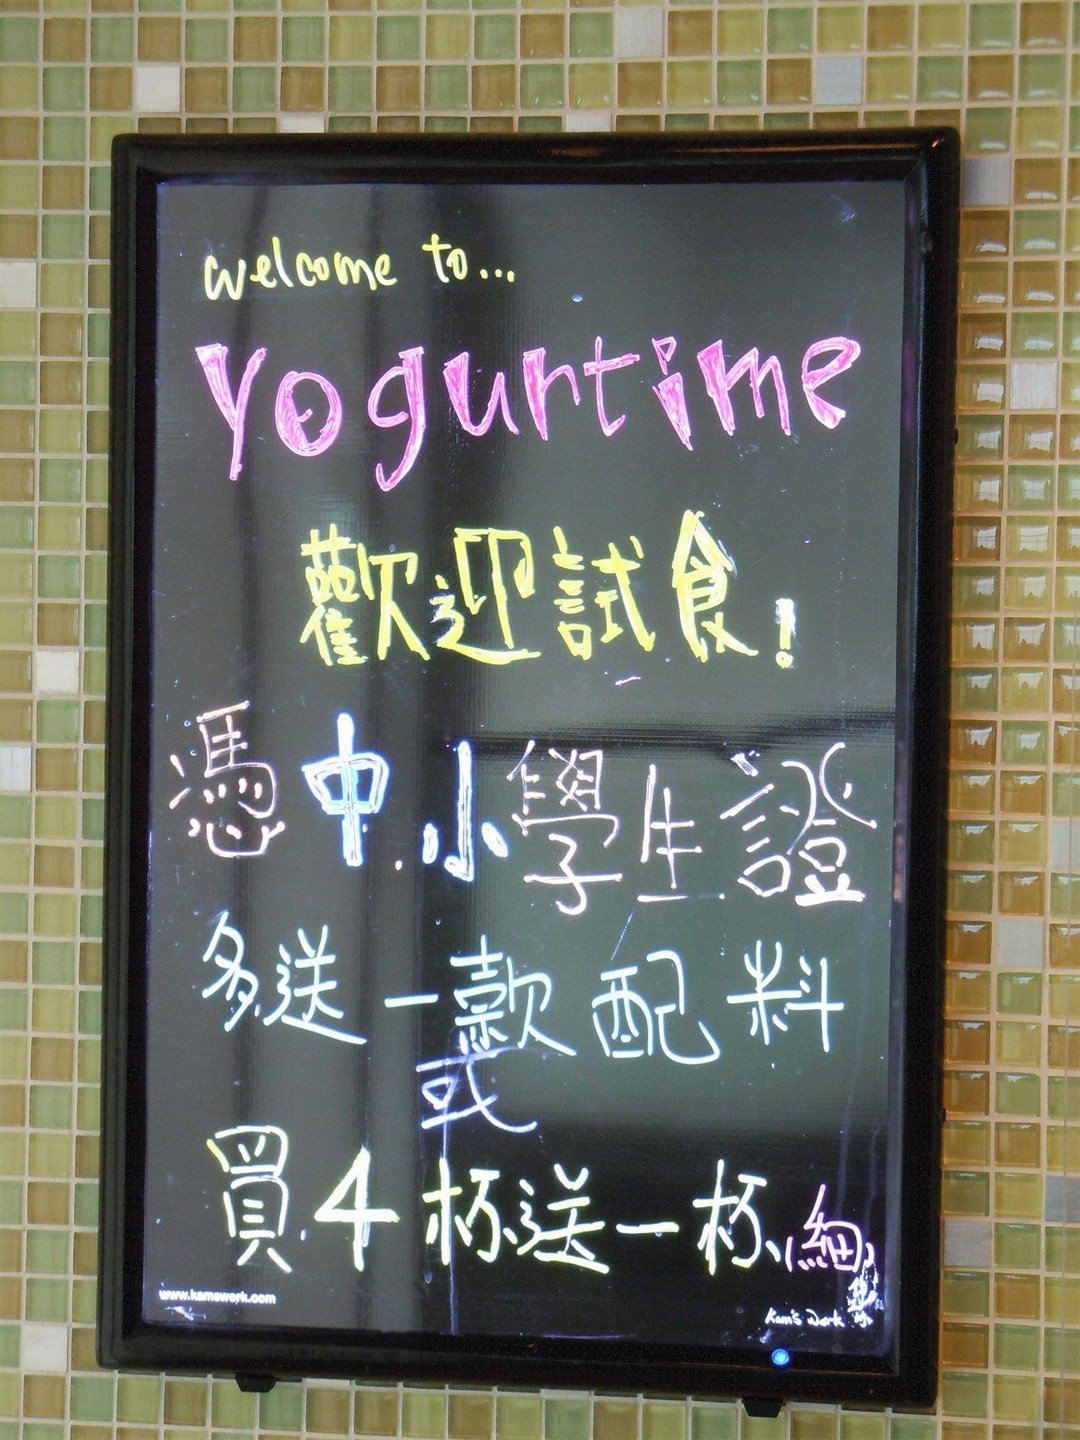 welcome to...
Yogurtime
歡迎試食!
憑中.小學生證
多送一款配料
或
買4杯送一杯(細)
www.kamswork.com
Kam's Work